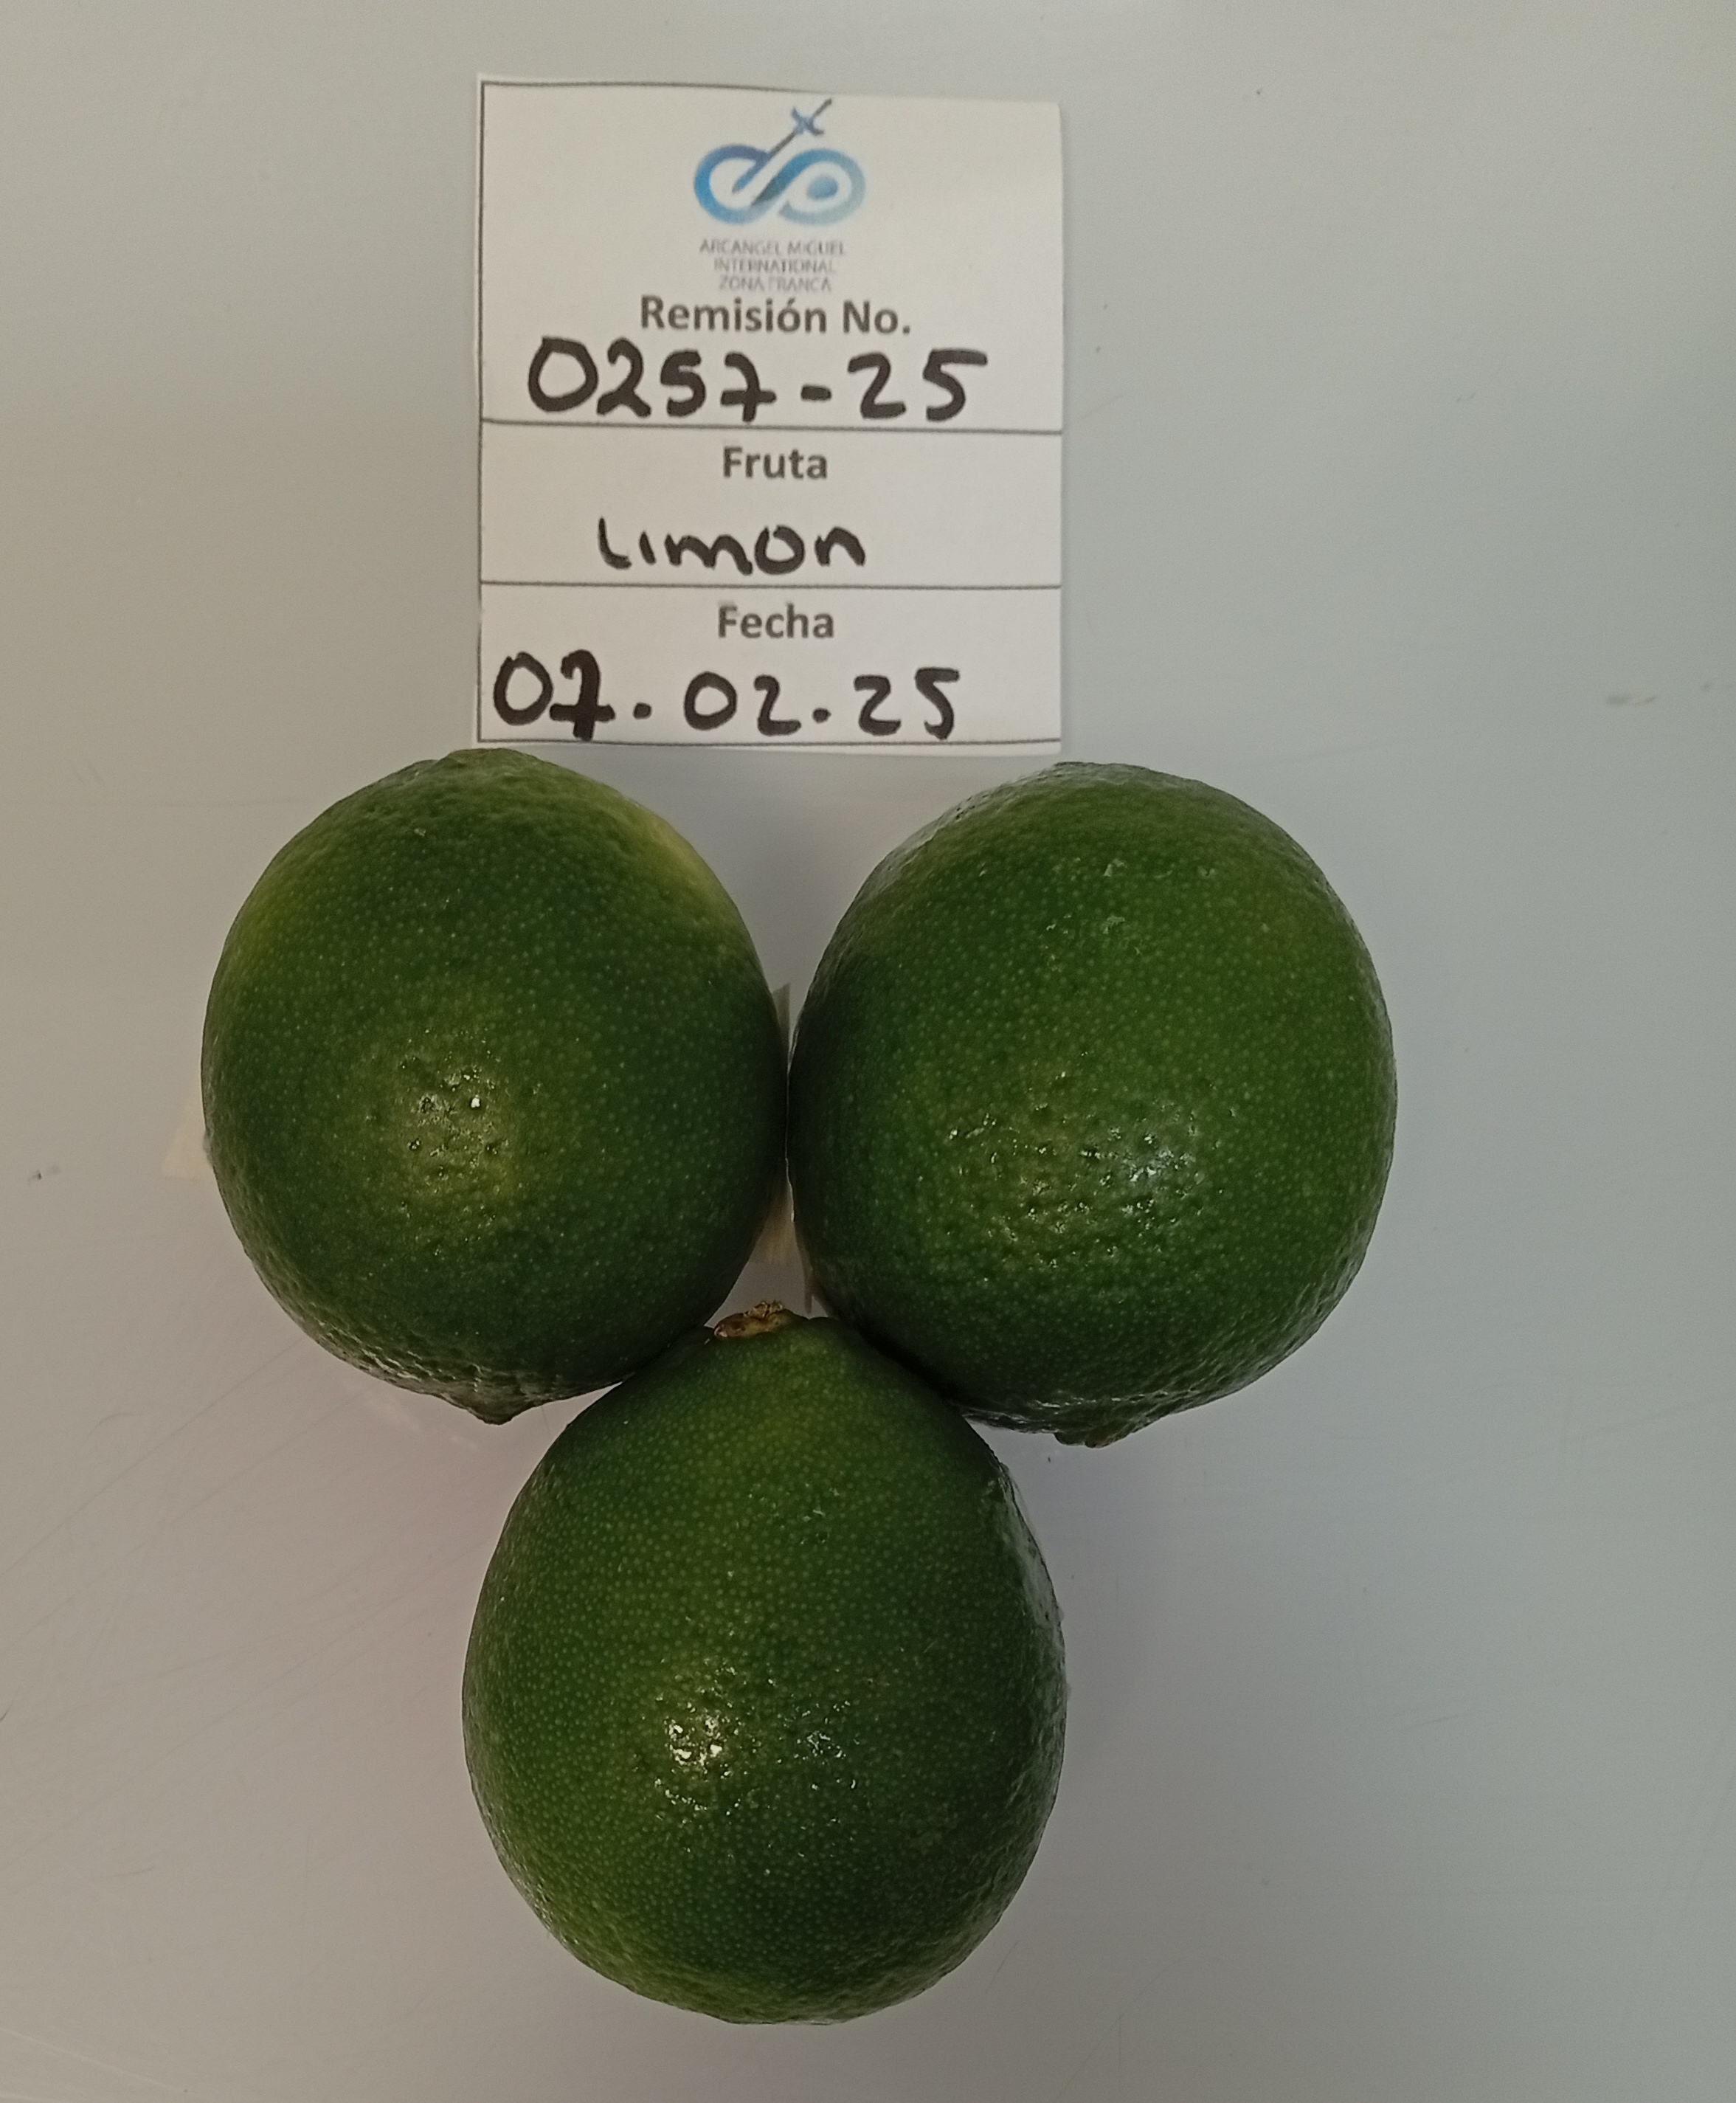 ARCANGEL MIGUEL
INTERNATIONAL
ZONA FRANCA
Remisión No.
0257-25
Fruta
Limon
Fecha
07.02.25